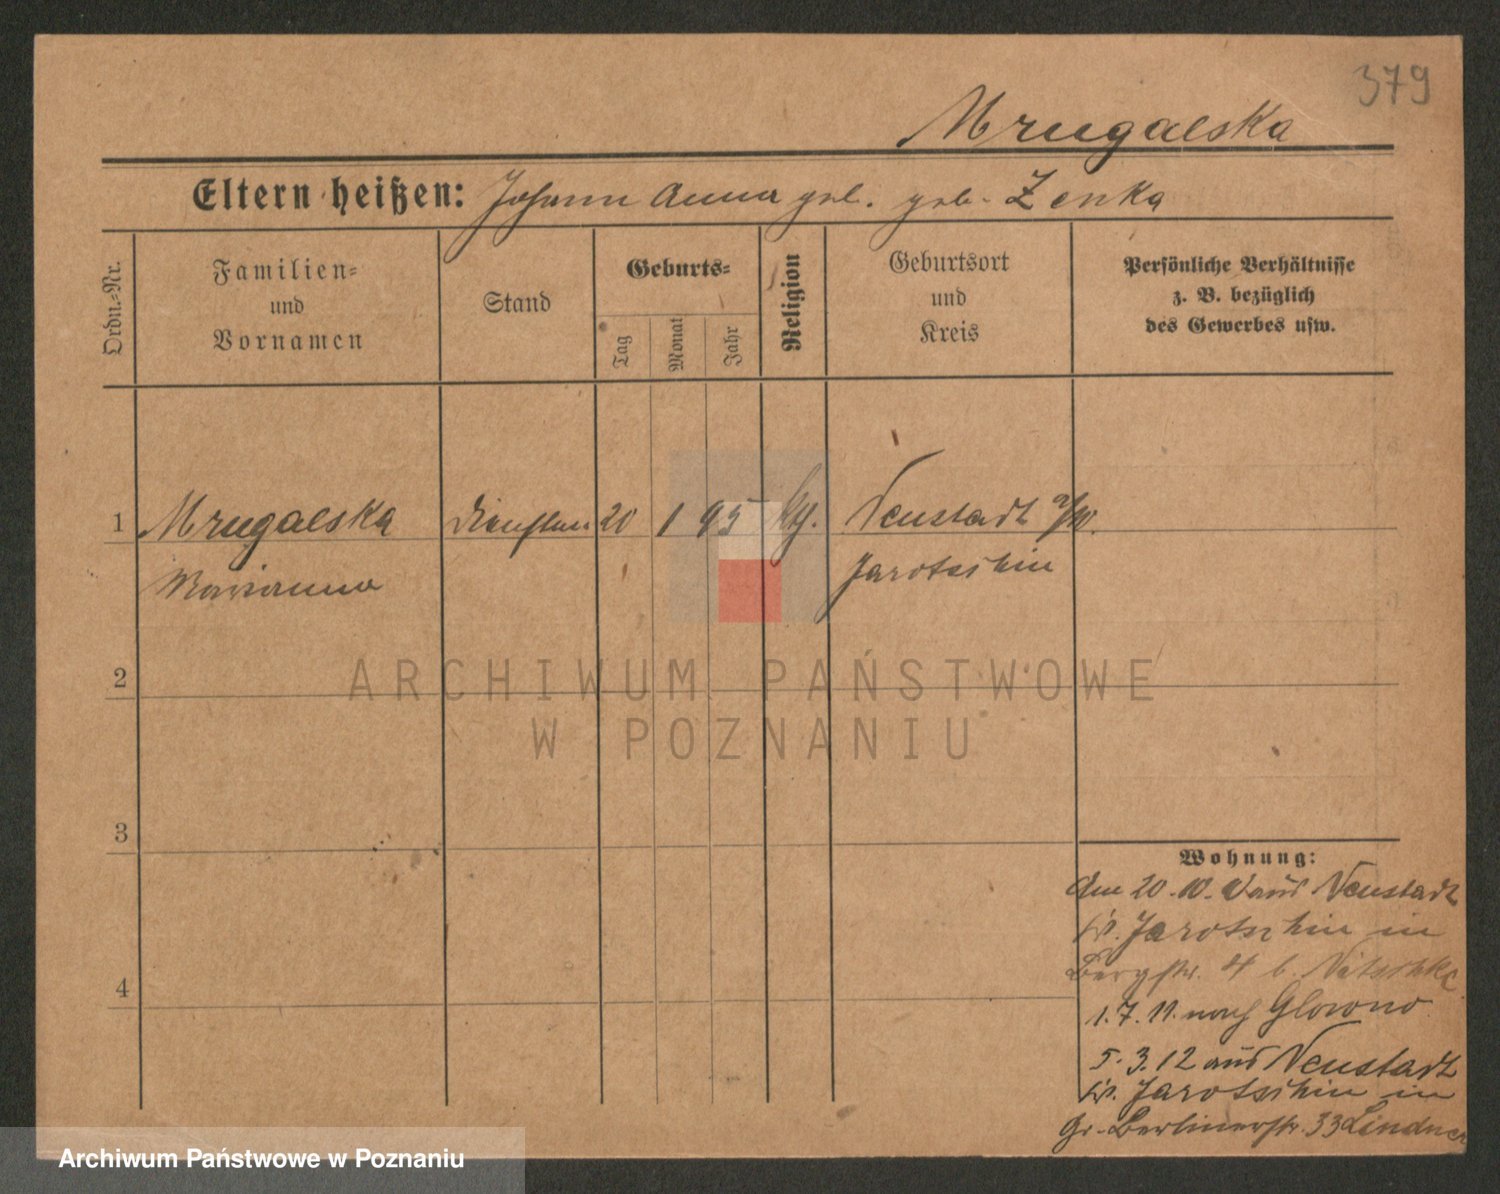 379
Mrugalska
Eltern heißen: Johann Anna geb. Zenka
Ordn.-Nr.
Familien-
und
Vornamen
Stand
Geburts-
Tag
Monat
Jahr
Religion
Geburtsort
und
Kreis
Persönliche Verhältnisse
z. B. bezüglich
des Gewerbes usw.
1 Mrugalska 20 1 95 Neustadt a/W.
Marianna Jarotschin
2
3
4
Wohnung:
Am 20.10. aus Neustadt
Kr. Jarotschin in
Bergstr. 4 b. Nitschke
1.7.11. nach Glowno
5.3.12 aus Neustadt
Kr. Jarotschin in
Gr. Berlinerstr. 33 Lindner
ARCHIWUM PAŃSTWOWE
W POZNANIU
Archiwum Państwowe w Poznaniu